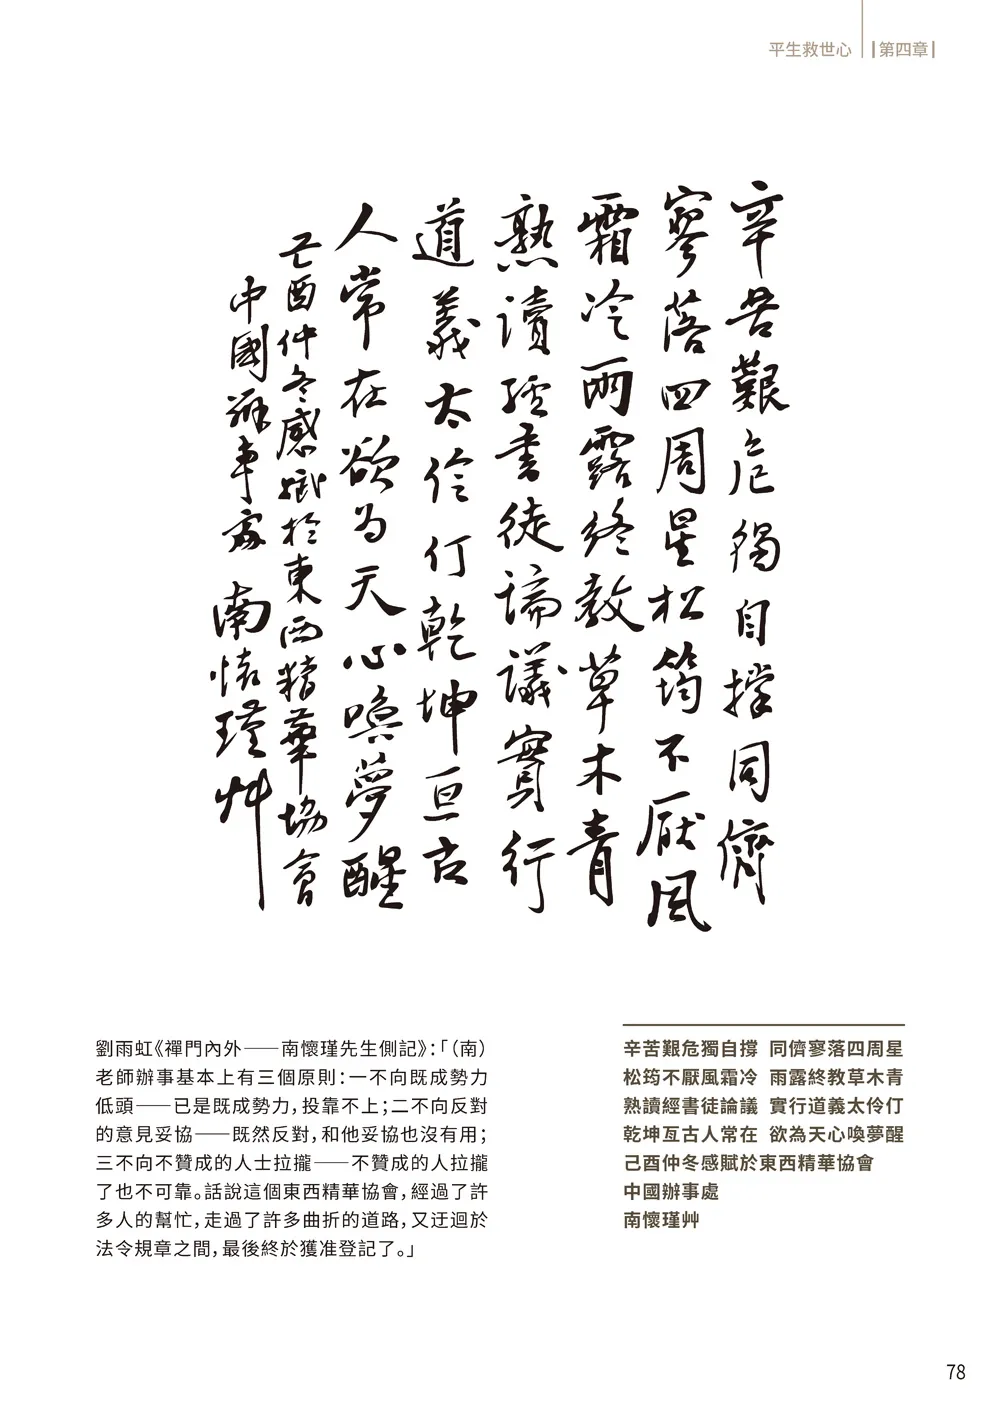 平生救世心 第四章
辛苦艱危獨自撐同儕
寥落四周星松筠不厭風
霜冷雨露終教草木青
熟讀經書徒論議實行
道義太伶仃乾坤亘古
人常在欲為天心喚夢醒
己酉仲冬感賦於東西精華協會
中國辦事處 南懷瑾艸
劉雨虹《禪門內外——南懷瑾先生側記》：「（南）
老師辦事基本上有三個原則：一不向既成勢力
低頭——已是既成勢力，投靠不上；二不向反對
的意見妥協——既然反對，和他妥協也沒有用；
三不向不贊成的人士拉攏——不贊成的人拉攏
了也不可靠。話說這個東西精華協會，經過了許
多人的幫忙，走過了許多曲折的道路，又迂迴於
法令規章之間，最後終於獲准登記了。」
辛苦艱危獨自撐 同儕寥落四周星
松筠不厭風霜冷 雨露終教草木青
熟讀經書徒論議 實行道義太伶仃
乾坤亙古人常在 欲為天心喚夢醒
己酉仲冬感賦於東西精華協會
中國辦事處
南懷瑾艸
78